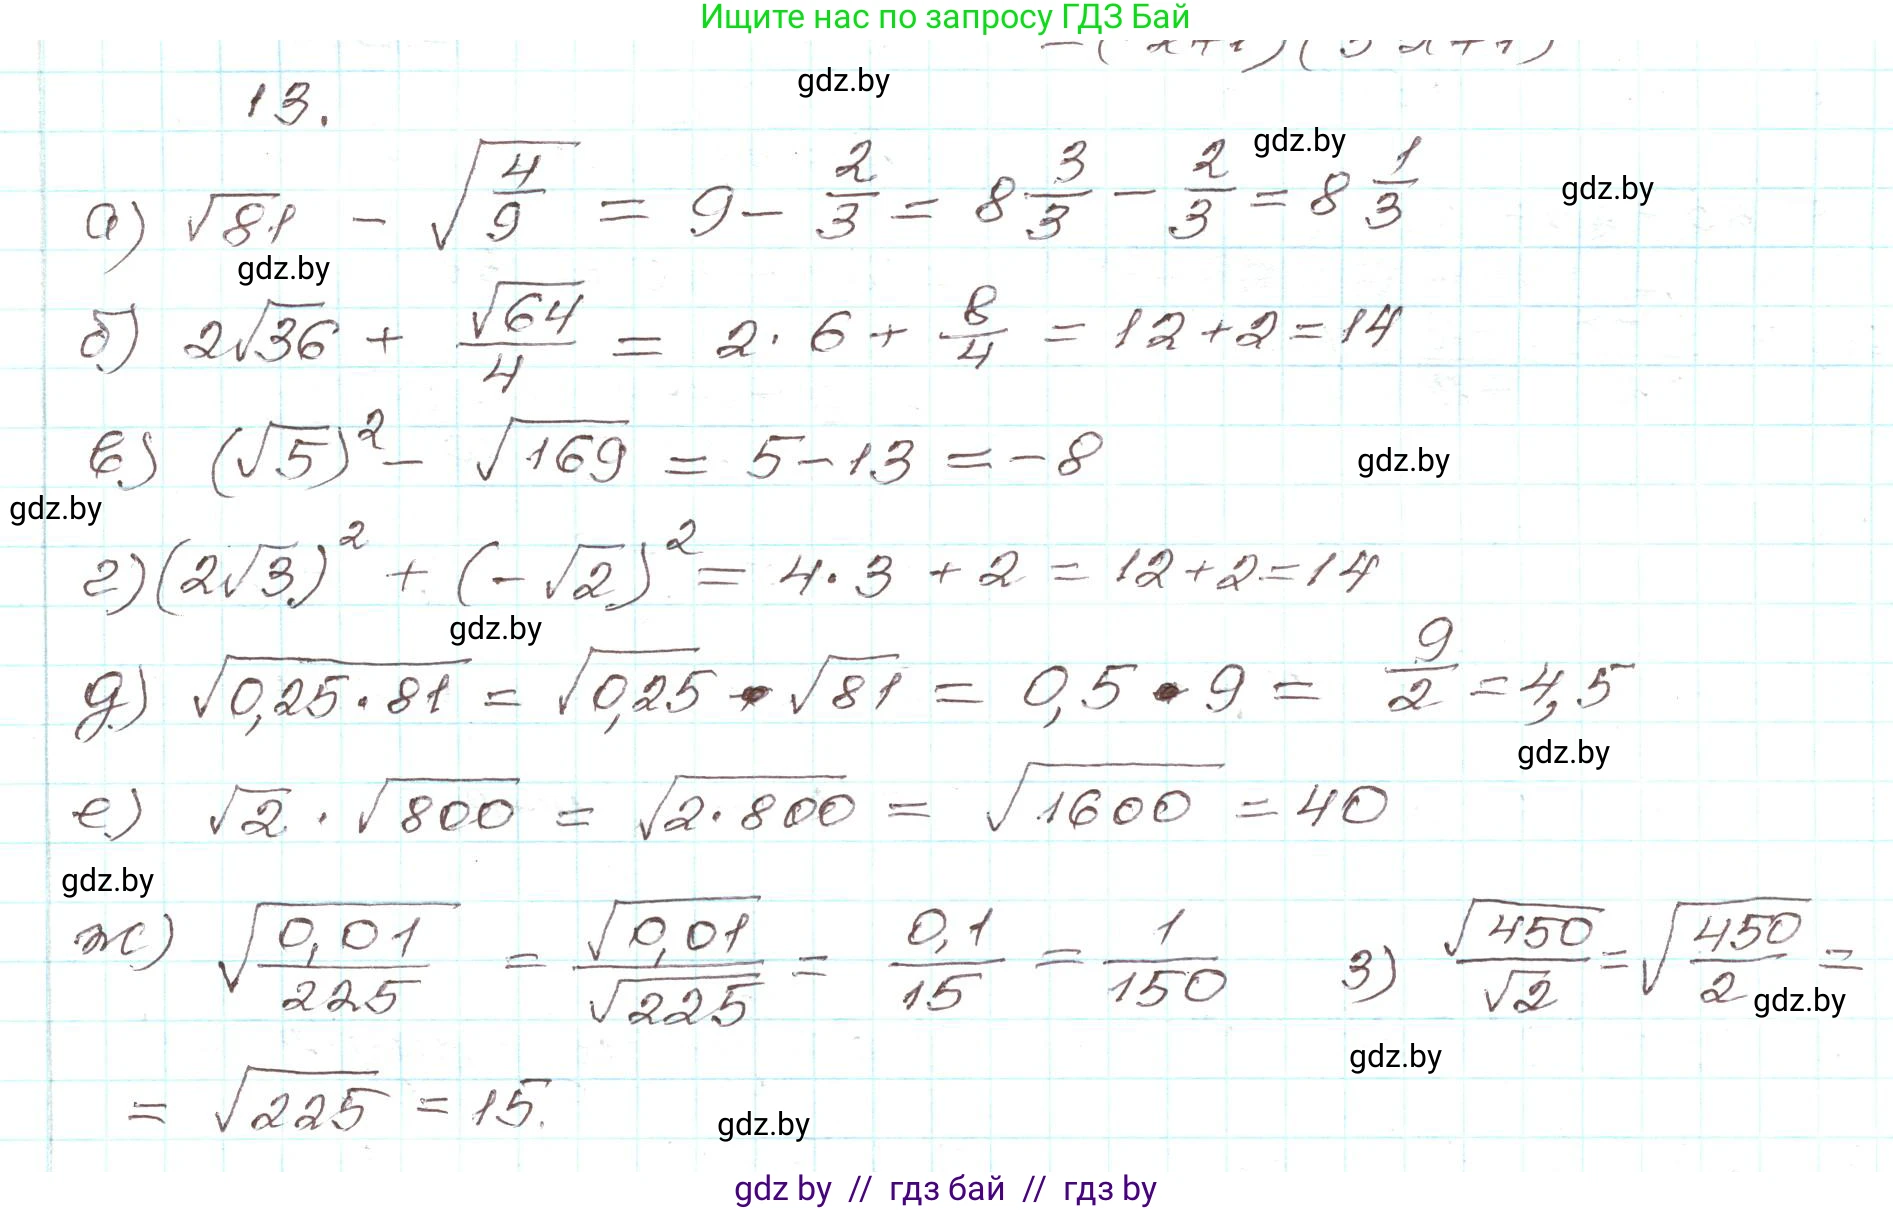 Ищите нас по запросу ГДЗ Бай
gdz.by
13.
gdz.by
gdz.by
а) √81 - √(4/9) = 9 - 2/3 = 8 3/3 - 2/3 = 8 1/3
gdz.by
б) 2√36 + √64/4 = 2 · 6 + 8/4 = 12 + 2 = 14
в) (√5)² - √169 = 5 - 13 = -8
gdz.by
gdz.by
г) (2√3)² + (-√2)² = 4 · 3 + 2 = 12 + 2 = 14
gdz.by
д) √(0,25 · 81) = √0,25 · √81 = 0,5 · 9 = 9/2 = 4,5
gdz.by
е) √2 · √800 = √(2 · 800) = √1600 = 40
gdz.by
ж) √(0,01/225) = √0,01/√225 = 0,1/15 = 1/150 з) √450/√2 = √(450/2) =
gdz.by
gdz.by
= √225 = 15.
gdz.by
gdz by // гдз бай // гдз by